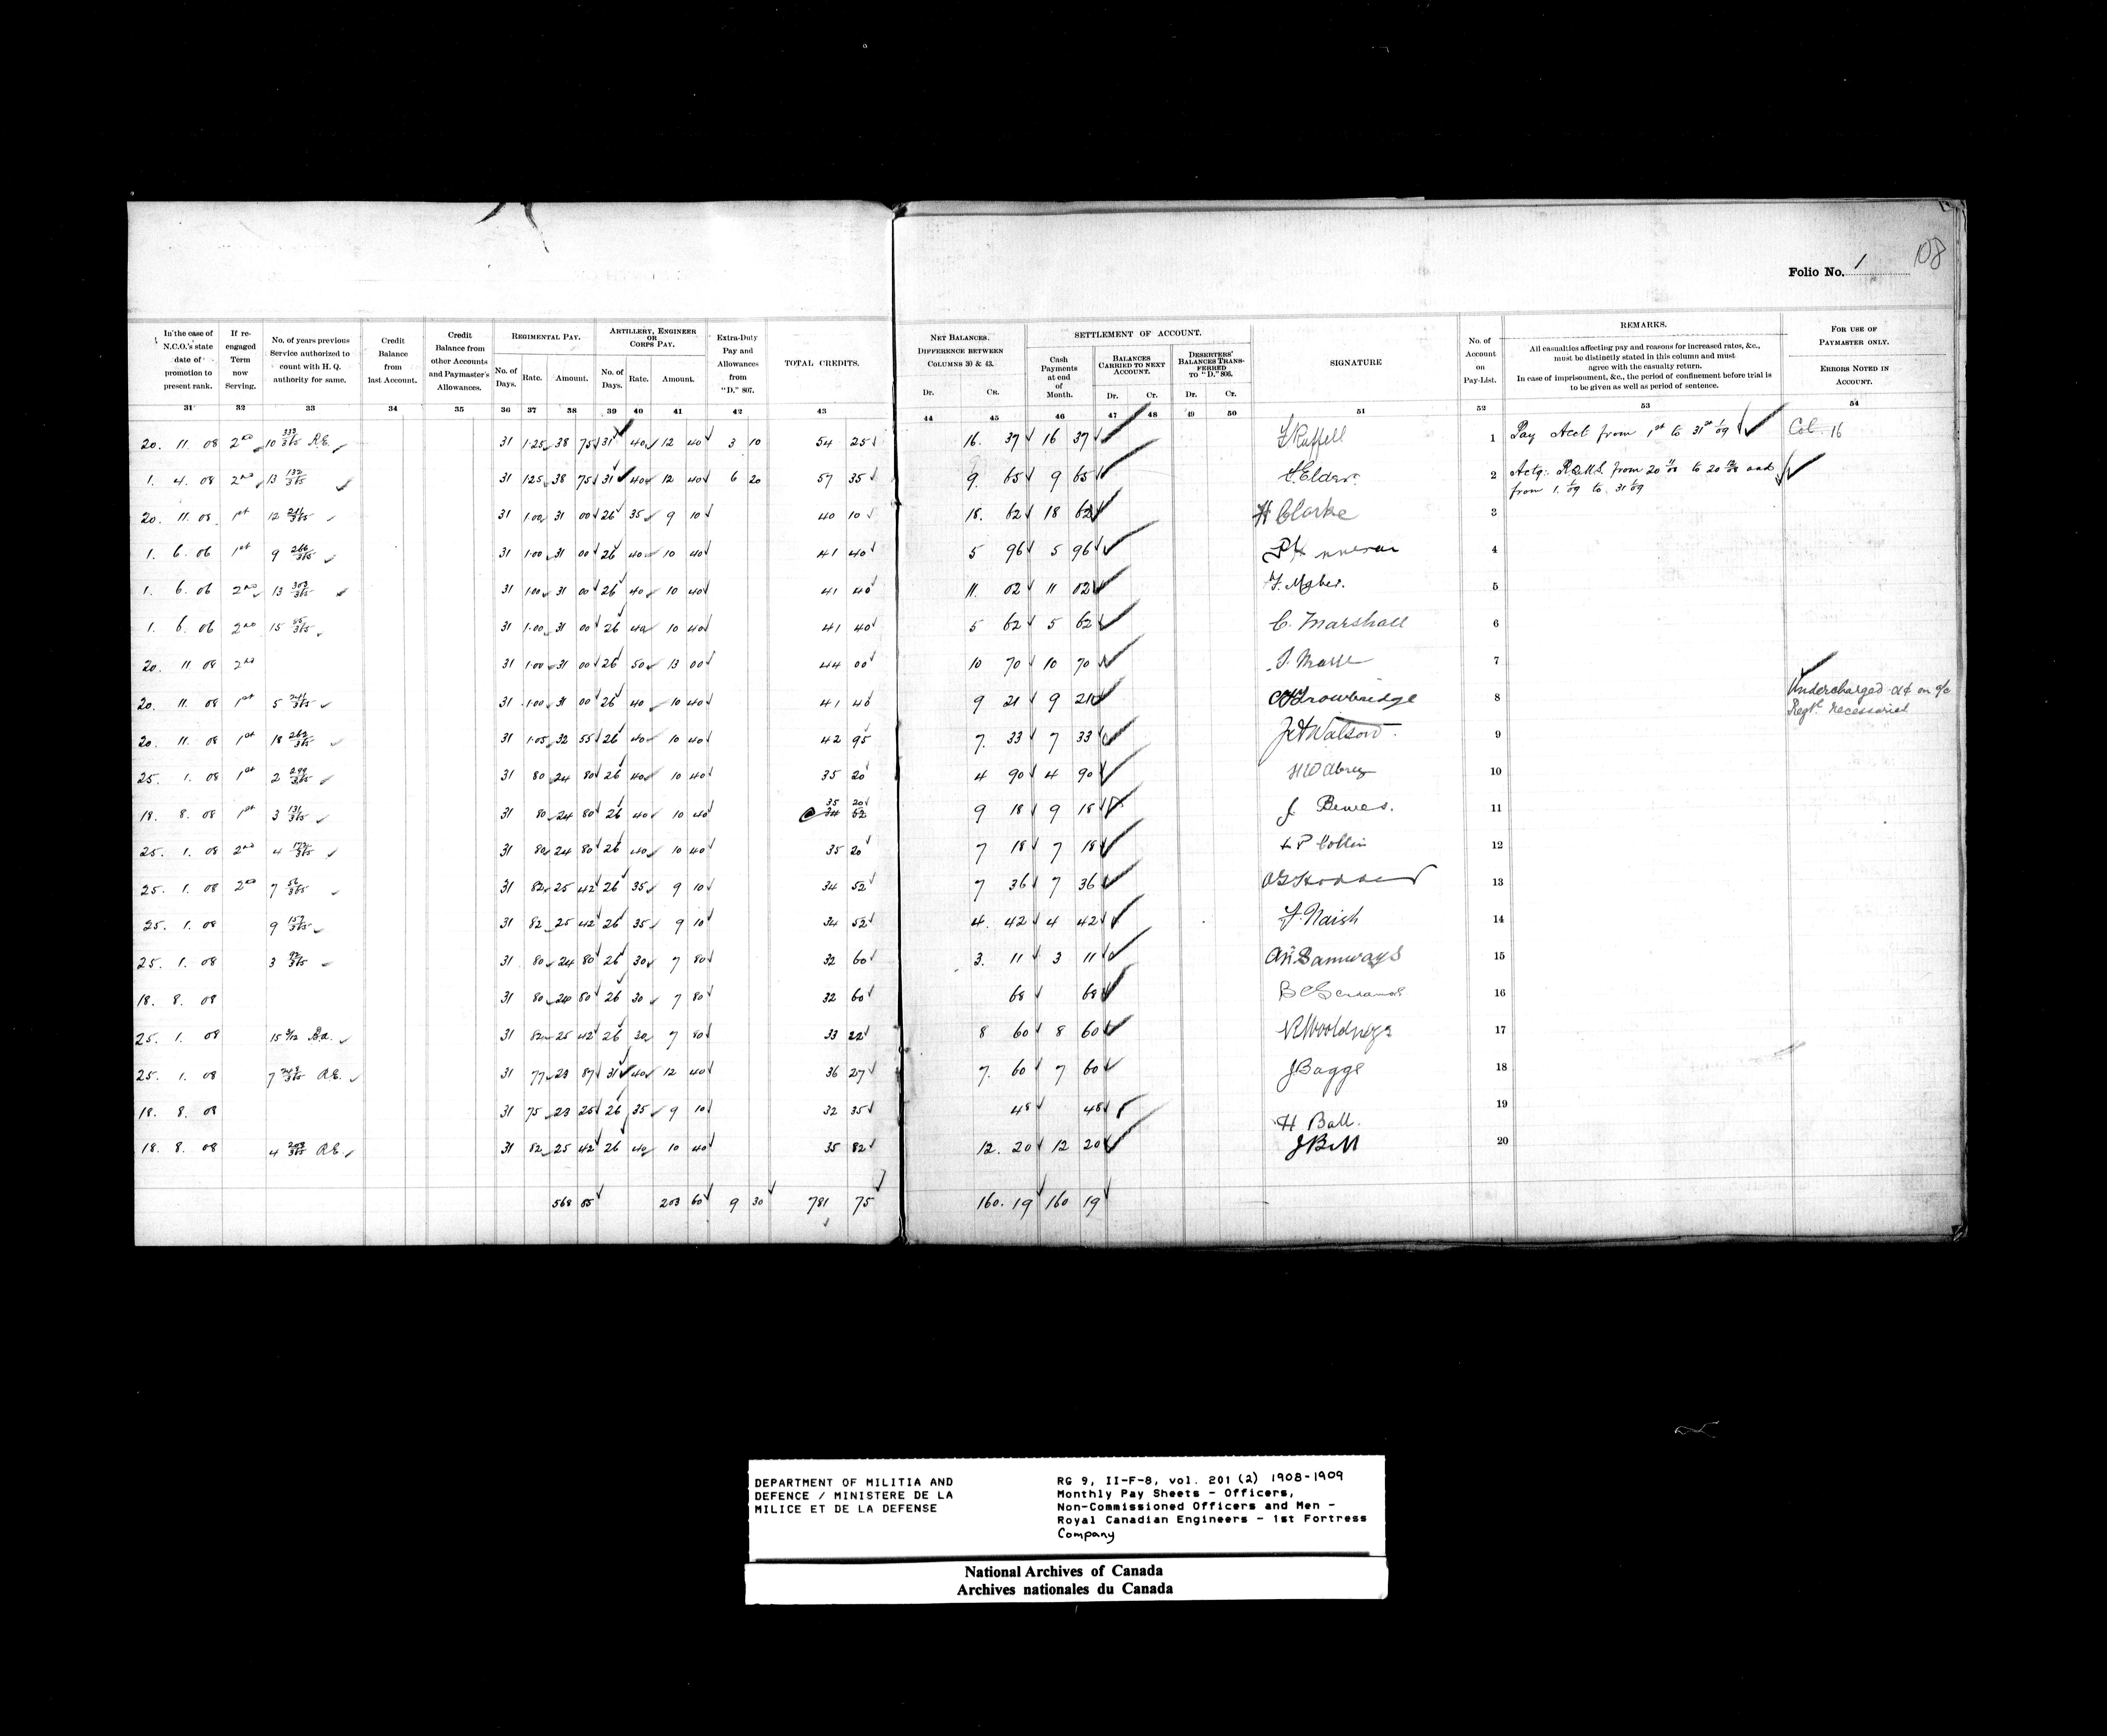 108
Folio No. 1
In the case of N.C.O.'s state date of promotion to present rank.
If re-engaged Term now Serving.
No. of years previous Service authorized to count with H. Q. authority for same.
Credit Balance from last Account.
Credit Balance from other Accounts and Paymaster's Allowances.
REGIMENTAL PAY.
No. of Days. Rate. Amount.
ARTILLERY, ENGINEER OR CORPS PAY.
No. of Days. Rate. Amount.
Extra-Duty Pay and Allowances from "D." 807.
TOTAL CREDITS.
NET BALANCES.
DIFFERENCE BETWEEN COLUMNS 30 & 43.
Dr. CR.
SETTLEMENT OF ACCOUNT.
Cash Payments at end of Month.
BALANCES CARRIED TO NEXT ACCOUNT.
Dr. Cr.
DESERTERS' BALANCES TRANSFERRED TO "D." 806.
Dr. Cr.
SIGNATURE
No. of Account on Pay-List.
REMARKS.
All casualties affecting pay and reasons for increased rates, &c.,
must be distinctly stated in this column and must
agree with the casualty return.
In case of imprisonment, &c., the period of confinement before trial is
to be given as well as period of sentence.
FOR USE OF PAYMASTER ONLY.
ERRORS NOTED IN ACCOUNT.
31 32 33 34 35 36 37 38 39 40 41 42 43 44 45 46 47 48 49 50 51 52 53 54
20. 11. 08 2nd 10 333/365 R.E. 31 1.25 38 75 31 40 12 40 3 10 54 25 16. 37 16 37 1 Pay Acct from 1st to 31st 1/09 Col. 16
1. 4. 08 2nd 13 132/365 31 1.25 38 75 31 40 12 40 6 20 57 35 9. 65 9 65 2 Actg. R.Q.M.S. from 20 11/08 to 20 12/08 and
from 1. 1/09 to 31 1/09
20. 11. 08 1st 12 31 1.00 31 00 26 35 9 10 40 10 18. 62 18 62 H Clarke 3
1. 6. 06 1st 9 266/365 31 1.00 31 00 26 40 10 40 41 40 5 96 5 96 4
1. 6. 06 2nd 13 303/365 31 1.00 31 00 26 40 10 40 41 40 11. 02 11 02 5
1. 6. 06 2nd 15 31 1.00 31 00 26 40 10 40 41 40 5 62 5 62 C. Marshall 6
20. 11. 08 2nd 31 1.00 31 00 26 50 13 00 44 00 10 70 10 70 7
20. 11. 08 1st 5 31 1.00 31 00 26 40 10 40 41 40 9 21 9 21 Trowbridge 8 Undercharged on a/c
Regtl. Necessaries
20. 11. 08 1st 18 262/365 31 1.05 32 55 26 40 10 40 42 95 7. 33 7 33 J H Watson 9
25. 1. 08 1st 2 299/365 31 80 24 80 26 40 10 40 35 20 4 90 4 90 10
18. 8. 08 1st 3 131/365 31 80 24 80 26 40 10 40 35 20 34 52 9 18 9 18 11
25. 1. 08 2nd 4 31 80 24 80 26 40 10 40 35 20 7 18 7 18 12
25. 1. 08 2nd 7 56/365 31 82 25 42 26 35 9 10 34 52 7 36 7 36 13
25. 1. 08 9 31 82 25 42 26 35 9 10 34 52 4. 42 4 42 F. Naish 14
25. 1. 08 3 31 80 24 80 26 30 7 80 32 60 3. 11 3 11 Samways 15
18. 8. 08 31 80 24 80 26 30 7 80 32 60 68 68 16
25. 1. 08 15 31 82 25 42 26 30 7 80 33 22 8 60 8 60 17
25. 1. 08 7 R.E. 31 77 23 87 31 40 12 40 36 27 7. 60 7 60 J Bagge 18
18. 8. 08 31 75 23 25 26 35 9 10 32 35 48 48 H Ball. 19
18. 8. 08 4 203/365 R.E. 31 82 25 42 26 40 10 40 35 82 12. 20 12 20 J Bell 20
568 85 203 60 9 30 781 75 160. 19 160 19
DEPARTMENT OF MILITIA AND
DEFENCE / MINISTERE DE LA
MILICE ET DE LA DEFENSE
RG 9, II-F-8, vol. 201 (2) 1908-1909
Monthly Pay Sheets - Officers,
Non-Commissioned Officers and Men -
Royal Canadian Engineers - 1st Fortress
Company
National Archives of Canada
Archives nationales du Canada